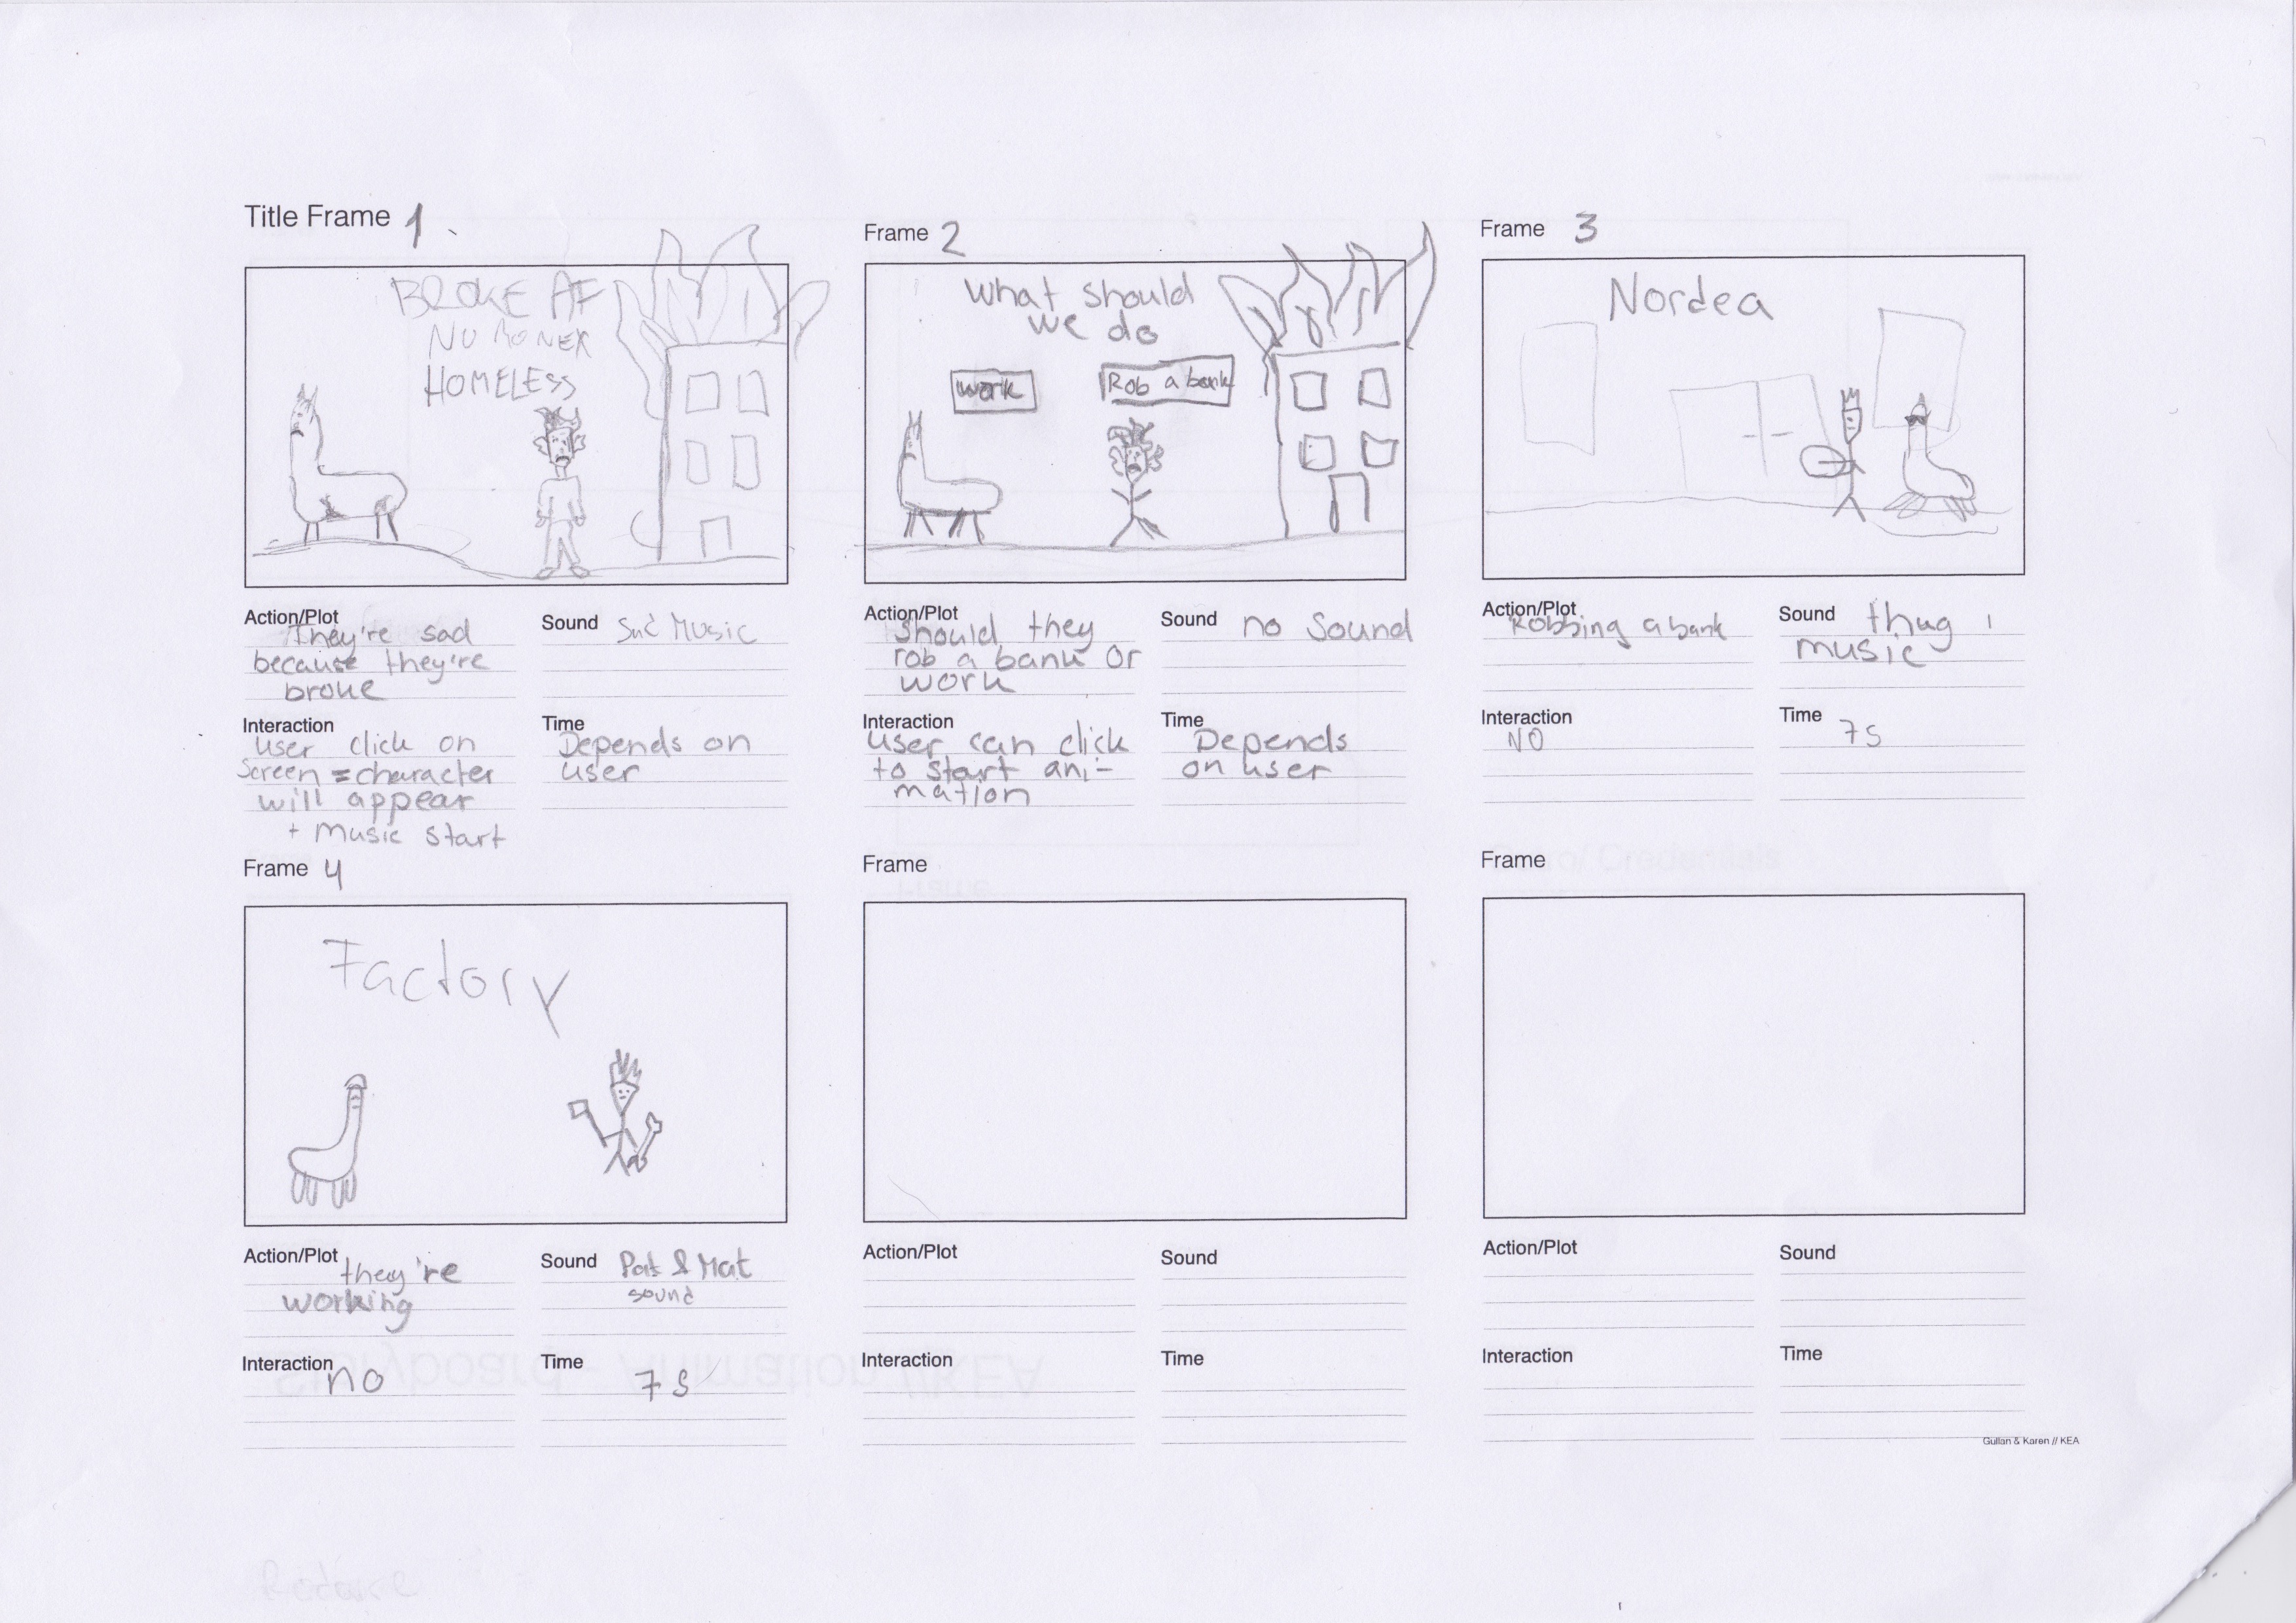 Title Frame 1
BROKE AF
NO MONEY
HOMELESS
Action/Plot
They're sad
because they're
broke
Sound Sad Music
Interaction
User click on
Screen = character
will appear
+ Music start
Time
Depends on
user
Frame 2
What should
we do
work
Rob a bank
Action/Plot
Should they
rob a bank or
work
Sound no Sound
Interaction
User can click
to start ani-
mation
Time
Depends
on user
Frame 3
Nordea
Action/Plot
Robbing a bank
Sound thug
music
Interaction
NO
Time 7s
Frame 4
Factory
Action/Plot they're
working
Sound Pat & Mat
sound
Interaction no
Time
7s
Frame
Action/Plot
Sound
Interaction
Time
Frame
Action/Plot
Sound
Interaction
Time
Gullan & Karen // KEA
Storyboard - Animation //KEA